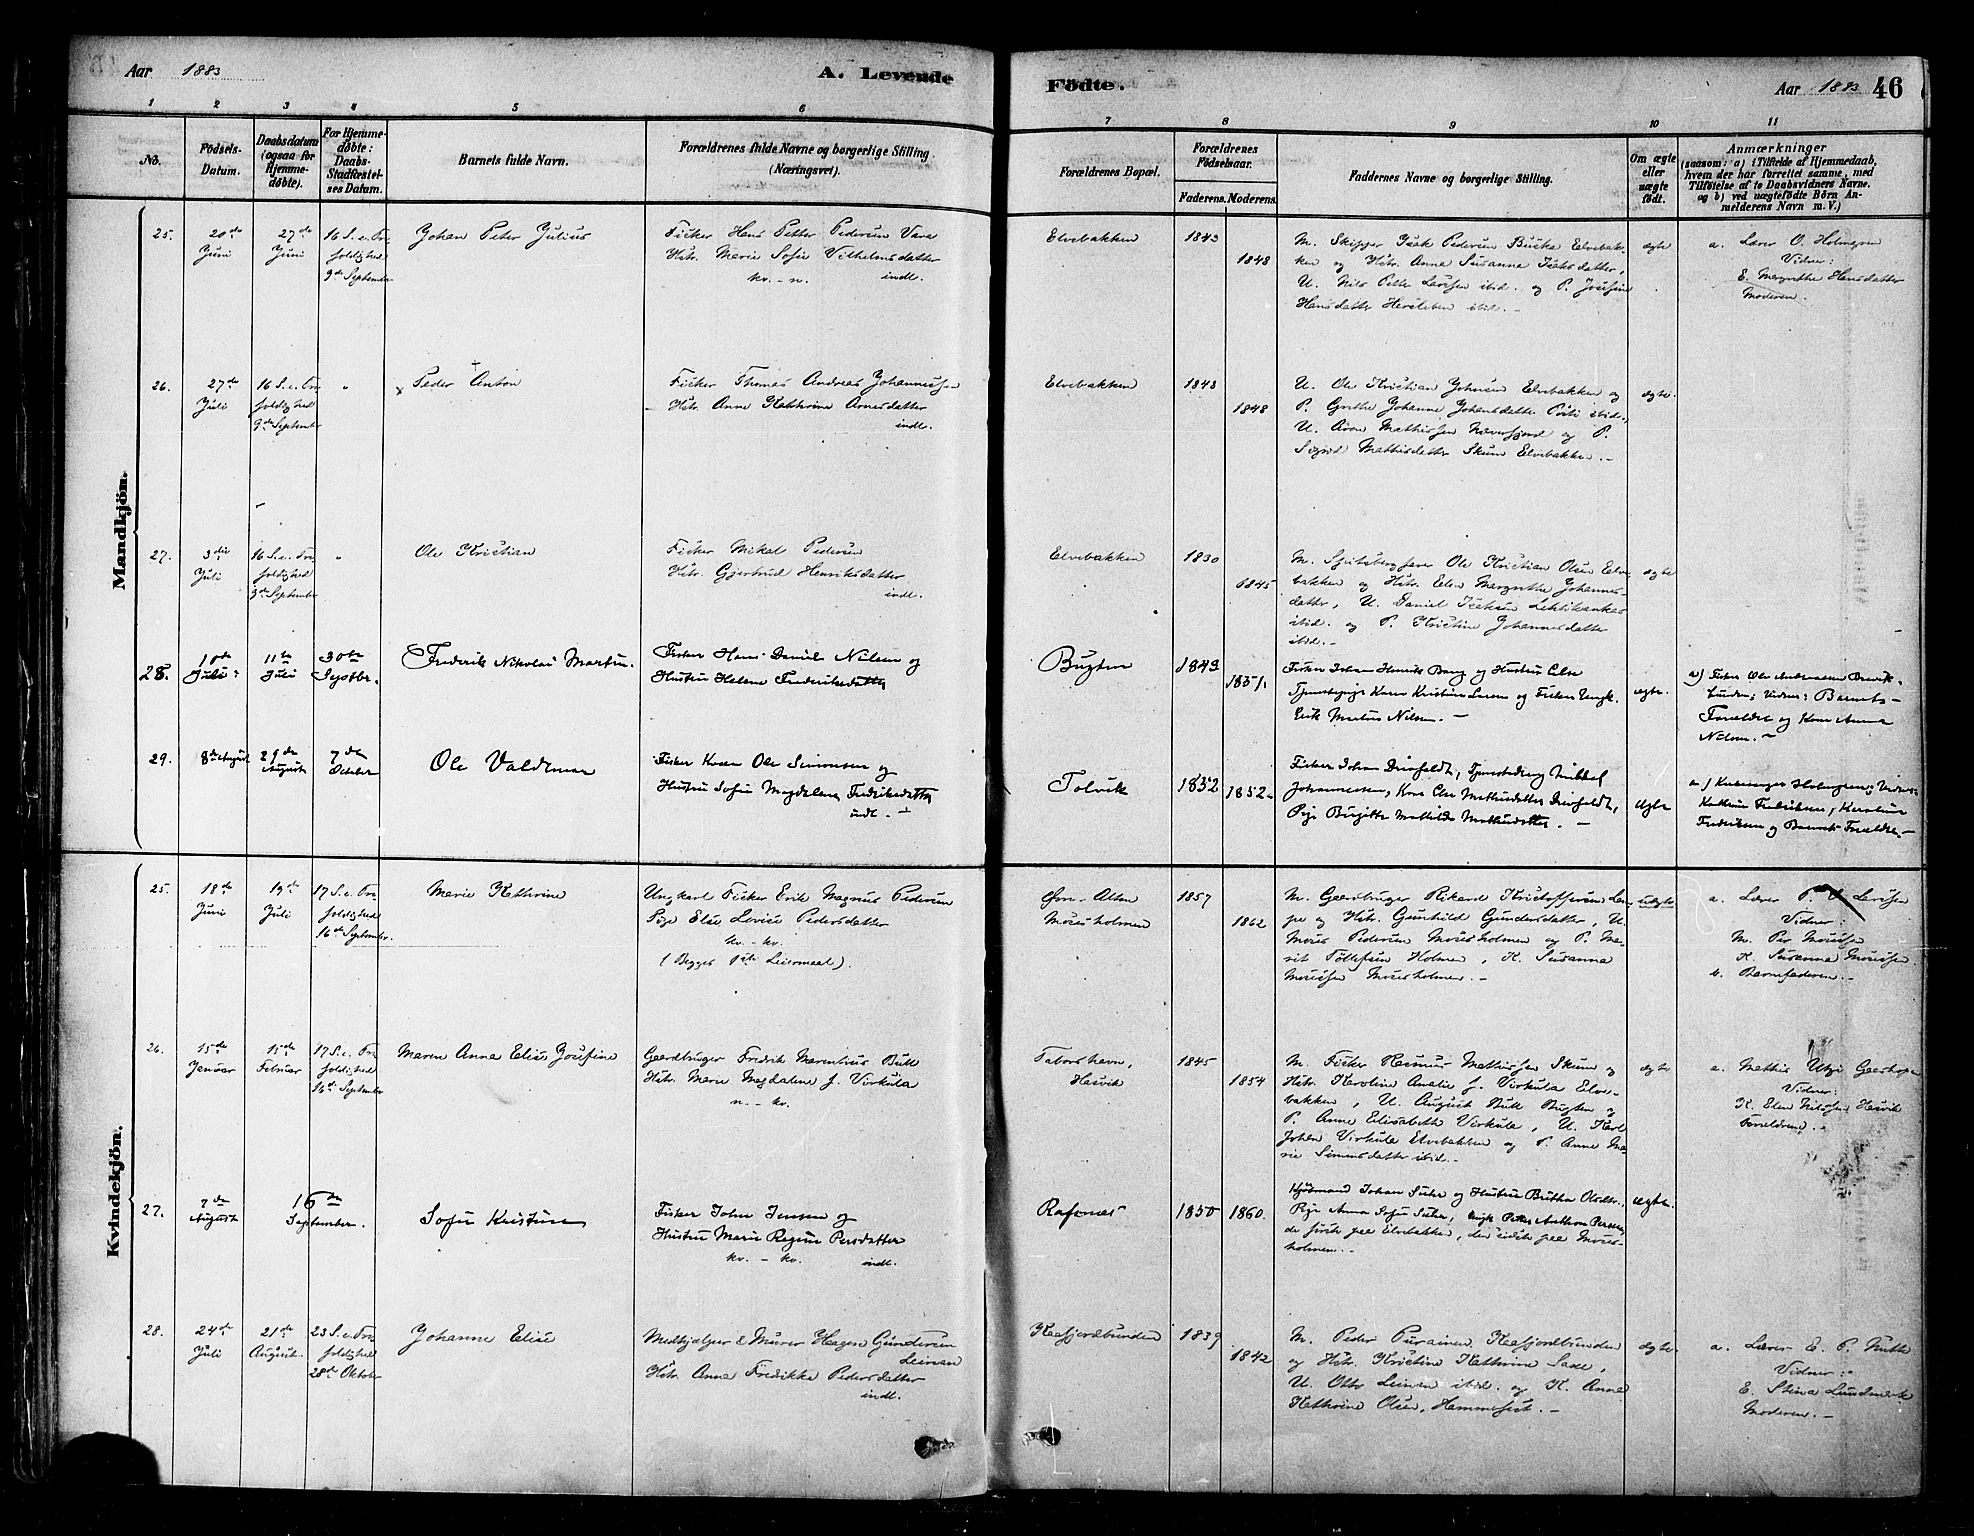 Aar 1883
A. Levende
Födte.
Aar 1883
46
1 2 3 4 5 6 7 8 9 10 11
No.
Födsels-
Datum.
Daabsdatum
(ogsaa for
Hjemme-
døbte).
For Hjemme-
døbte:
Daabs-
Stadfæstel-
ses Datum.
Barnets fulde Navn.
Forældrenes fulde Navne og borgerlige Stilling
(Næringsvei).
Forældrenes Bopæl.
Forældrenes
Födselsaar.
Faderens. Moderens.
Faddernes Navne og borgerlige Stilling.
Om ægte
eller
uægte
födt.
Anmærkninger
(saasom: a) i Tilfælde af Hjemmedaab,
hvem der har forrettet samme, med
Tilføielse af to Daabsvidners Navne.
og b) ved uægtefødte Börn An-
melderens Navn m. V.)
Mandkjön.
25.
20de
Juni
27de
Juni
16 S. e. Tre-
foldighed
9de September
Johan Peter Julius
Fisker Hans Petter Pedersen Vara
Hstr. Marie Sofie Vilhelmsdatter
kv. - n. indl.
Elvebakken
1843
1848
M. Skipper Isak Pedersen Buska Elvebak-
ken og Hstr. Anna Susanna Isaksdatter,
U. Nils Petter Larssen ibid. og P. Josefine
Hansdatter Hersleben ibid. -
ægte
a. Lærer O. Holmgren
Vidner:
E. Margrethe Hansdatter
Moderen.
26.
27de
Juli
16 S. e. Tre-
foldighed
9de September
"
Peder Anton
Fisker Thomas Andreas Johannessen
Hstr. Anne Kathrine Arnesdatter
indl.
Elvebakken
1843
1848
U. Ole Kristian Johnsen Elvebakken og
P. Grethe Johanne Johansdatter ibid.,
U. Aron Mathissen og P.
Sigrid Mathisdatter Skum Elvebakken. -
ægte
27.
3die
Juli
16 S. e. Tre-
foldighed
9de September
"
Ole Kristian
Fisker Mikal Pedersen
Hstr. Gjertrud Henriksdatter
indl.
Elvebakken
1830
1845
M. Spitsbergfarer Ole Kristian Olsen Elve-
bakken og Hstr. Elen Margrethe Johannes-
datter, U. Daniel Isaksen
ibid. og P. Kristine Johannesdatter
ibid. -
ægte
28.
10de
Juli
11te
Juli
30te
Septbr.
Frederik Nikolai Martin.
Fisker Hans Daniel Nilsen og
Hustru Helene Frederiksdatter
Bugten
1843
1851.
Fisker Johan Henrik Bang og Hustru Else
Tjenestepige Karen Kristine Larsen og Fisker Ungk.
Erik Martus Nilsen. -
ægte.
a) Fisker Ole Andreassen
Vidner: Barnets
Forældre og Kone Anna
Nilsen. -
29.
8de August
29de
August
7de
October
Ole Valdemar
Fisker Kvæn Ole Simonsen og
Hustru Sofie Magdalena Fredriksdatter
indl. -
Tolvik
1852
1852.
Fisker Johan Drivfeldt, Tjenestedreng Mikkel
Johannessen, Kone Else Mathisdatter Drivfeldt,
Pige Birgitte Mathilde Mathisdatter. -
ægte
a) Kirkesanger Holmgren; Vidner:
Kathrine Fredriksen, Karoline
Fredriksen og Barnets Forældre. -
Kvindekjön.
25.
18de
Juni
19de
Juli
17 S. e. Tre-
foldighed
16de September.
Marie Kathrine
Ungkarl Fisker Erik Magnus Pedersen
Pige Else Lovise Pedersdatter
kv. - kv.
(Begges 1ste Leiermaal).
Øvre-Alten
Mosesholmen
1857
1862
M. Gaardbruger Rikard Kristoffersen Lam-
pe og Hstr. Gunhild Gundersdatter, U.
Moses Pedersen Mosesholmen og P. Ma-
rit Tollefsen Holmen, K. Susanna
Mosesen Mosesholmen. -
uægte
a. Lærer P. Larssen
Vidner:
M. Per Mosesen
K. Susanna Mosesen
b. Barnefaderen. -
26.
15de
Januar
15de
Februar
17 S. e. Tre-
foldighed
16de September
Maren Anna Elise Josefine
Gaardbruger Fredrik Marentius Bull
Hstr. Marie Magdalene f. Virkula
n. - kv.
Taborshavn,
Hasvik
1845
1854
M. Fisker Rasmus Mathissen Skum og
Hstr. Karoline Amalie f. Virkula Elve-
bakken, U. August Bull Bugten og
P. Anne Elisabeth Virkula, U. Karl
Johan Virkula Elvebakken og P. Anne Ma-
rie Simonsdatter ibid. -
ægte
a. Mathis Utzi
Vidner:
K. Elen Nilssen Hasvik
Forældrene. -
27.
7de
August
16de
September.
Sofie Kristine
Fisker John Jensen og
Hustru Marie Regine Persdatter
kv. - kv. indl.
Rafsnæs
1850
1860.
Kjøbmand Johan Suhr og Hustru Britha Olsdtr.
Pige Anna Sofie Suhr, Ungk. Peter Anthon Persen,
de første paa Elvebakken, den sidste paa Moses-
holmen. -
ægte.
28.
24de
Juli
21de
August.
23 S. e. Tre-
foldighed
28de Oktober
Johanne Elise
Medhjælper & Murer Haagen Gundersen
Leinan
Hstr. Anna Fredikke Pedersdatter
indl.
Kaafjordbunden
1839
1842
M. Peder Purainen, Kaafjordbunden
og Hstr. Kristine Kathrine Sase,
U. Otto Leinan ibid. og K. Anne
Kathrine Olsen, Hammerfest. -
ægte.
a. Lærer E. P. Nutti
Vidner:
E. Stina Lundmark
Moderen. -